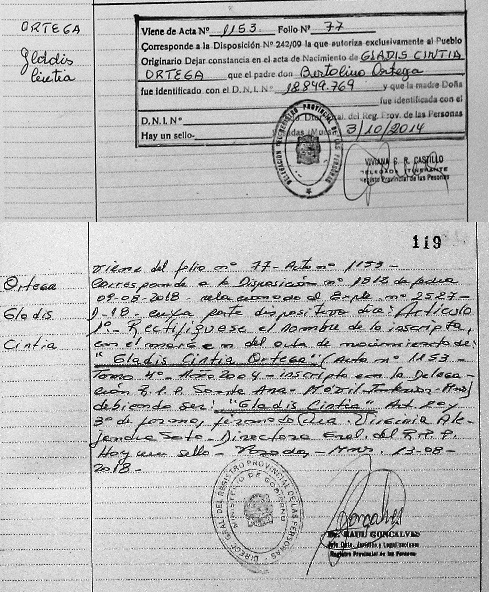 ORTEGA
Gladis
Cintia
Viene de Acta Nº 1153 Folio Nº 77
Corresponde a la Disposición Nº 242/09 la que autoriza exclusivamente al Pueblo
Originario Dejar constancia en el acta de Nacimiento de GLADIS CINTIA
ORTEGA que el padre don Bertolino Ortega
fue identificado con el D.N.I. Nº 18.849.769 y que la madre Doña
fue identificada con el
D.N.I. Nº Gral. del Reg. Prov. de las Personas
Hay un sello 3/10/2014
DELEGACION PROVINCIAL DE LAS PERSONAS
VIVIANA E. R. CASTILLO
DELEGADA ITINERANTE
Registro Provincial de las Personas
119
Ortega
Gladis
Cintia
Viene del folio nº 77- Acta nº 1153-
Corresponde a la Disposición nº 1812 de fecha
09-08-2018- relacionado al Expte. nº 2527-
-18- cuya parte dispositiva dice: Artículo
1º- Rectifíquese el nombre de la inscripta,
con el margen del acta de nacimiento de:
"Gladis Cintia Ortega" (Acta nº 1153-
Tomo 4º- Año 2004- inscripta en la Delega-
ción R.P.P. Santa Ana- Móvil
debiendo ser: "Gladis Cintia" Art 2º y
3º de forma, firmado Dra. Virginia Ale-
jandra Soto- Directora Gral. del R.P.P.
Hay un sello- Posadas, Mnes. 13-08-
2018-
DIRECC. GRAL. DEL REGISTRO PROVINCIAL DE LAS PERSONAS
MINISTERIO DE GOBIERNO
Dr. RAUL GONCALVES
Dpto. Jurídico y Legalizaciones
Registro Provincial de las Personas